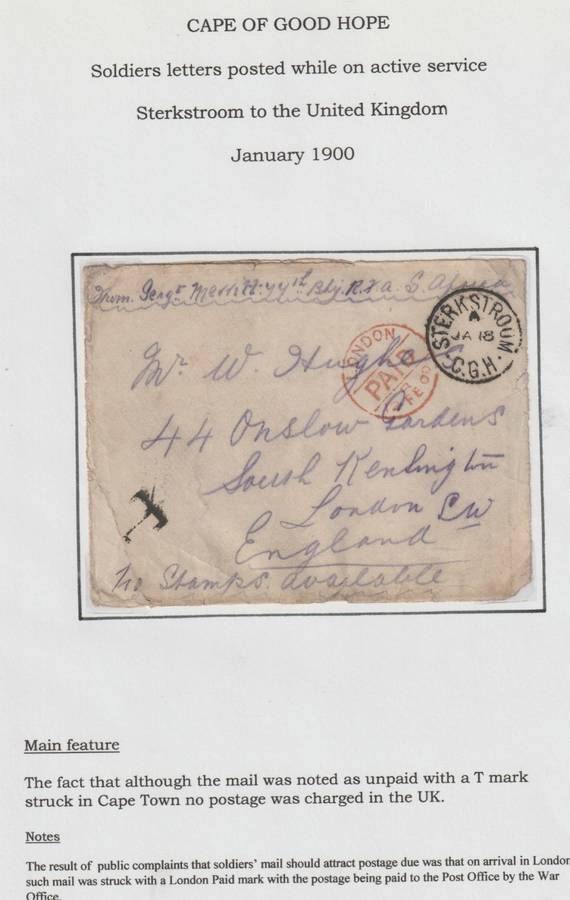 CAPE OF GOOD HOPE
Soldiers letters posted while on active service
Sterkstroom to the United Kingdom
January 1900
From. Sergt Merritt 77th Bty. R.F.a. S. Africa
STERKSTROOM
A
JA 18
C.G.H.
LONDON
PAID
FE 00
Mr. W. Hughes
44 Onslow Gardens
South Kensington
London SW
England
T
No Stamps available
Main feature
The fact that although the mail was noted as unpaid with a T mark
struck in Cape Town no postage was charged in the UK.
Notes
The result of public complaints that soldiers' mail should attract postage due was that on arrival in London
such mail was struck with a London Paid mark with the postage being paid to the Post Office by the War
Office.